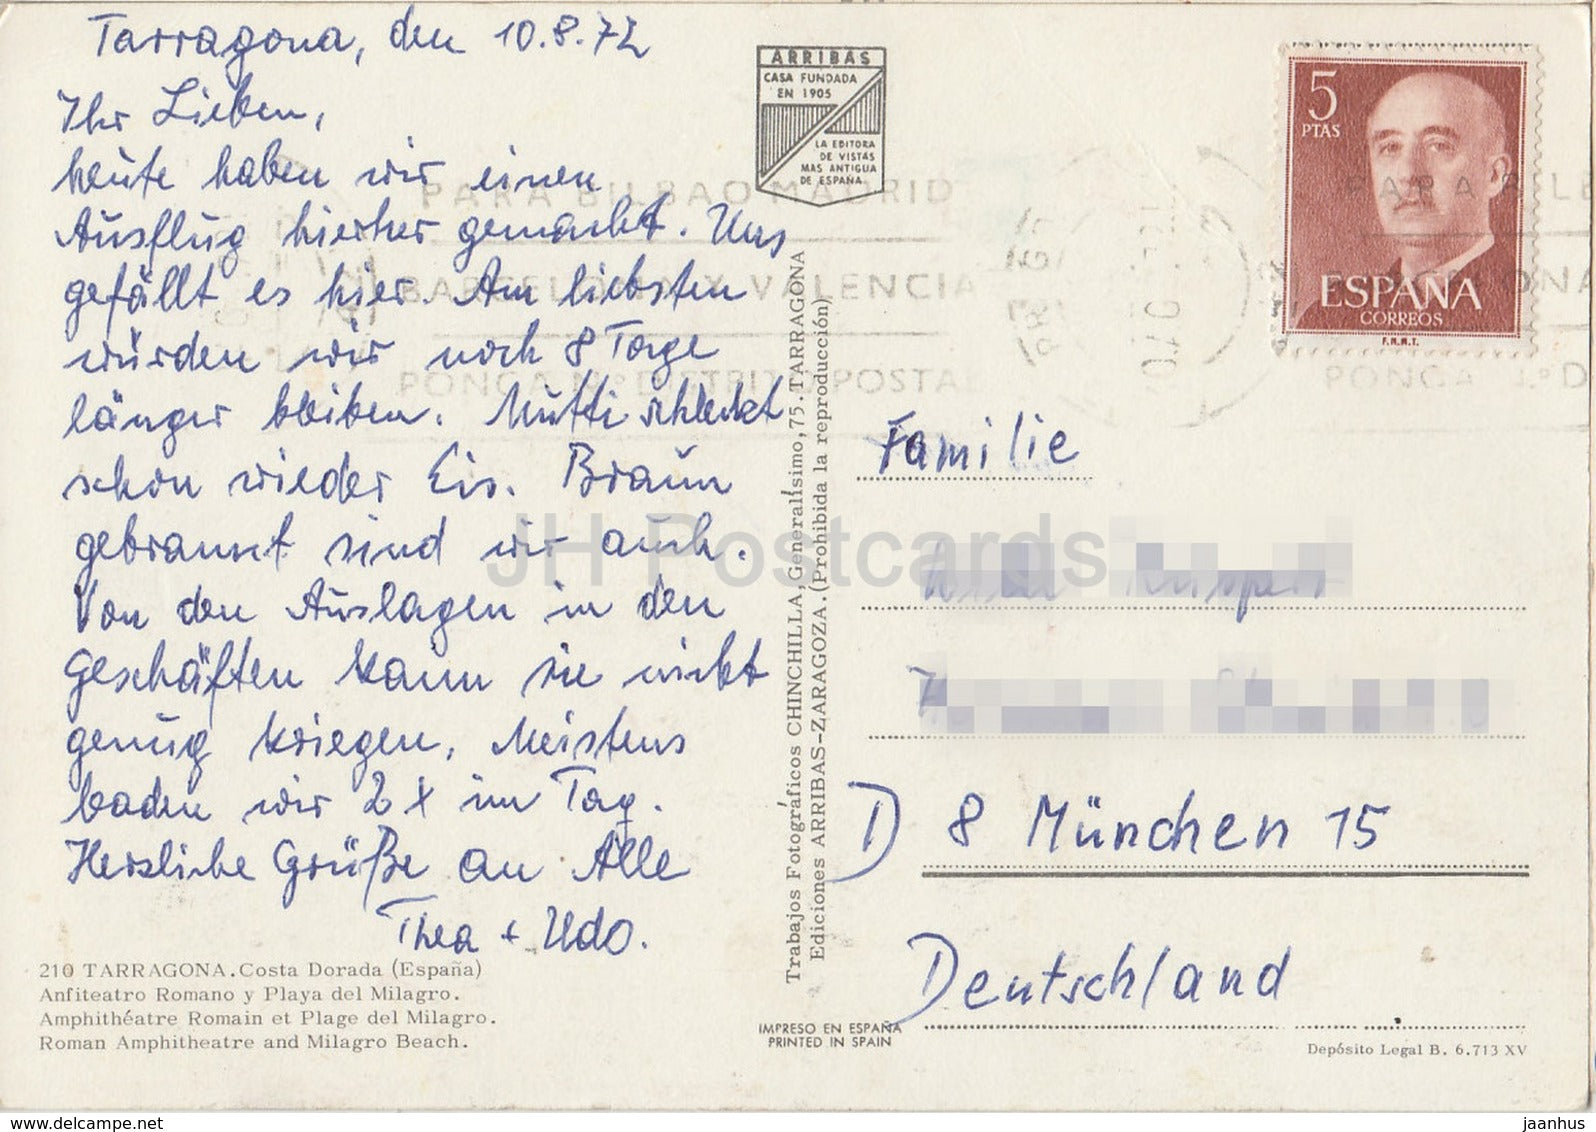 Tarragona, den 10.8.72
Ihr Lieben,
heute haben wir einen
Ausflug hierher gemacht. Uns
gefällt es hier. Am liebsten
würden wir noch 8 Tage
länger bleiben. Mutti schleckt
schon wieder Eis. Braun
gebrannt sind wir auch.
Von den Auslagen in den
Geschäften kann sie nicht
genug kriegen. Meistens
baden wir 2 x im Tag.
Herzliche Grüße an Alle
Thea + Udo.
210 TARRAGONA. Costa Dorada (España)
Anfiteatro Romano y Playa del Milagro.
Amphithéatre Romain et Plage del Milagro.
Roman Amphitheatre and Milagro Beach.
ARRIBAS
CASA FUNDADA
EN 1905
LA EDITORA
DE VISTAS
MAS ANTIGUA
DE ESPAÑA
Trabajos Fotográficos CHINCHILLA, Generalísimo, 75. TARRAGONA
Ediciones ARRIBAS-ZARAGOZA. (Prohibida la reproducción)
IMPRESO EN ESPAÑA
PRINTED IN SPAIN
5
PTAS
ESPAÑA
CORREOS
F.N.M.T.
PARA BILBAO MADRID
BARCELONA Y VALENCIA
PONGA Nº DISTRITO POSTAL
Familie
D 8 München 15
Deutschland
Depósito Legal B. 6.713 XV
JH Postcards
www.delcampe.net
jaanhus